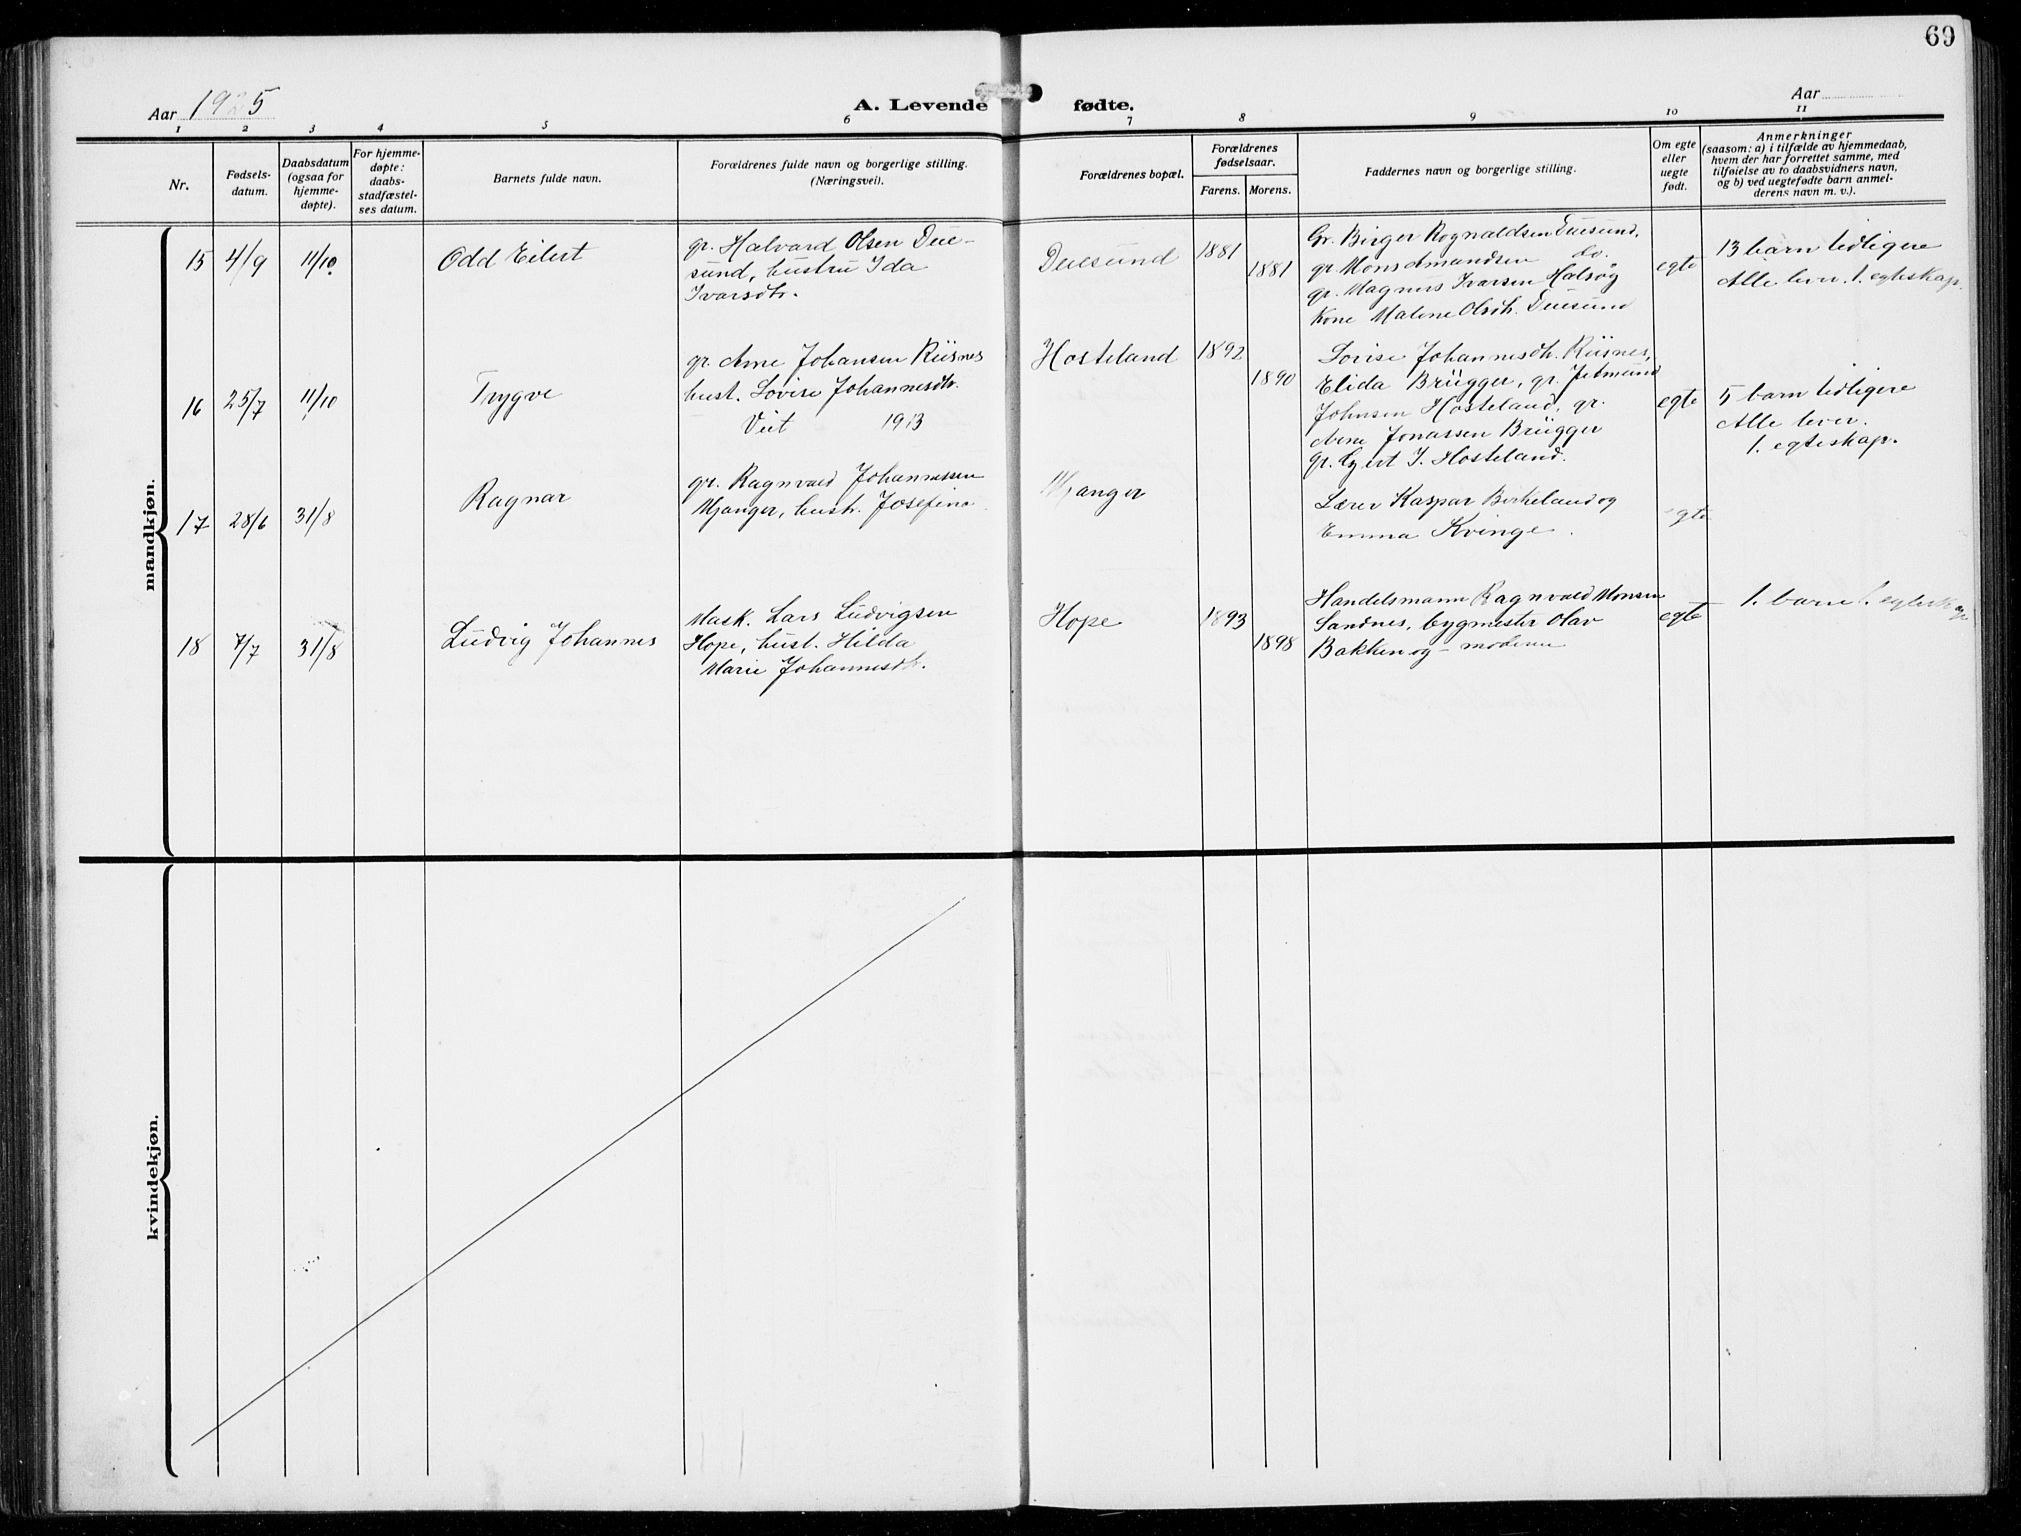 69
Aar 1925
A. Levende fødte.
Aar
1 2 3 4 5 6 7 8 9 10 11
Nr.
Fødsels-
datum.
Daabsdatum
(ogsaa for
hjemme-
døpte).
For hjemme-
døpte:
daabs-
stadfæstel-
ses datum.
Barnets fulde navn.
Forældrenes fulde navn og borgerlige stilling.
(Næringsvei).
Forældrenes bopæl.
Forældrenes
fødselsaar.
Farens. Morens.
Faddernes navn og borgerlige stilling.
Om egte
eller
uegte
født.
Anmerkninger
(saasom: a) i tilfælde av hjemmedaab,
hvem der har forrettet samme, med
tilføielse av to daabsvidners navn,
og b) ved uegtefødte barn anmel-
derens navn m. v.).
mandkjøn.
15 4/9 11/10 Odd Eilert
gr. Halvard Olsen Due-
sund, hustru Ida
Ivarsdtr.
Duesund 1881 1881
Gr. Birger Rognaldsen Duesund,
gr. Mons Amandsen do.
gr. Magnus Ivarsen Halsøg
Kone Malene Olsdtr. Duesund
egte
13 barn tidligere
Alle lever. 1. egteskap.
16 25/7 11/10 Trygve
gr. Arne Johansen Riisnes
hust. Lovise Johannesdtr.
Viet 1913
Hosteland 1892 1890
Lovise Johannesdtr. Riisnes,
Elida Brügger, gr. Petmund
Johnsen Hosteland, gr.
Arne Jonassen Brügger
gr. I. Hosteland.
egte
5 barn tidligere
Alle lever.
1. egteskap.
17 28/6 31/8 Ragnar
gr. Ragnvald Johannessen
Mjanger, hustr. Josefina
Mjanger
Lærer Kaspar Birkeland og
Emma Kvinge.
egte
18 7/7 31/8 Ludvig Johannes
Mask. Lars Ludvigsen
Hope, hust. Hilda
Marie Johannesdtr.
Hope 1893 1898
Handelsmann Ragnvald Monsen
Sandnes, bygmester Olav
Bakken og moderen
egte
1. barn 1. egteskap
kvindekjøn.